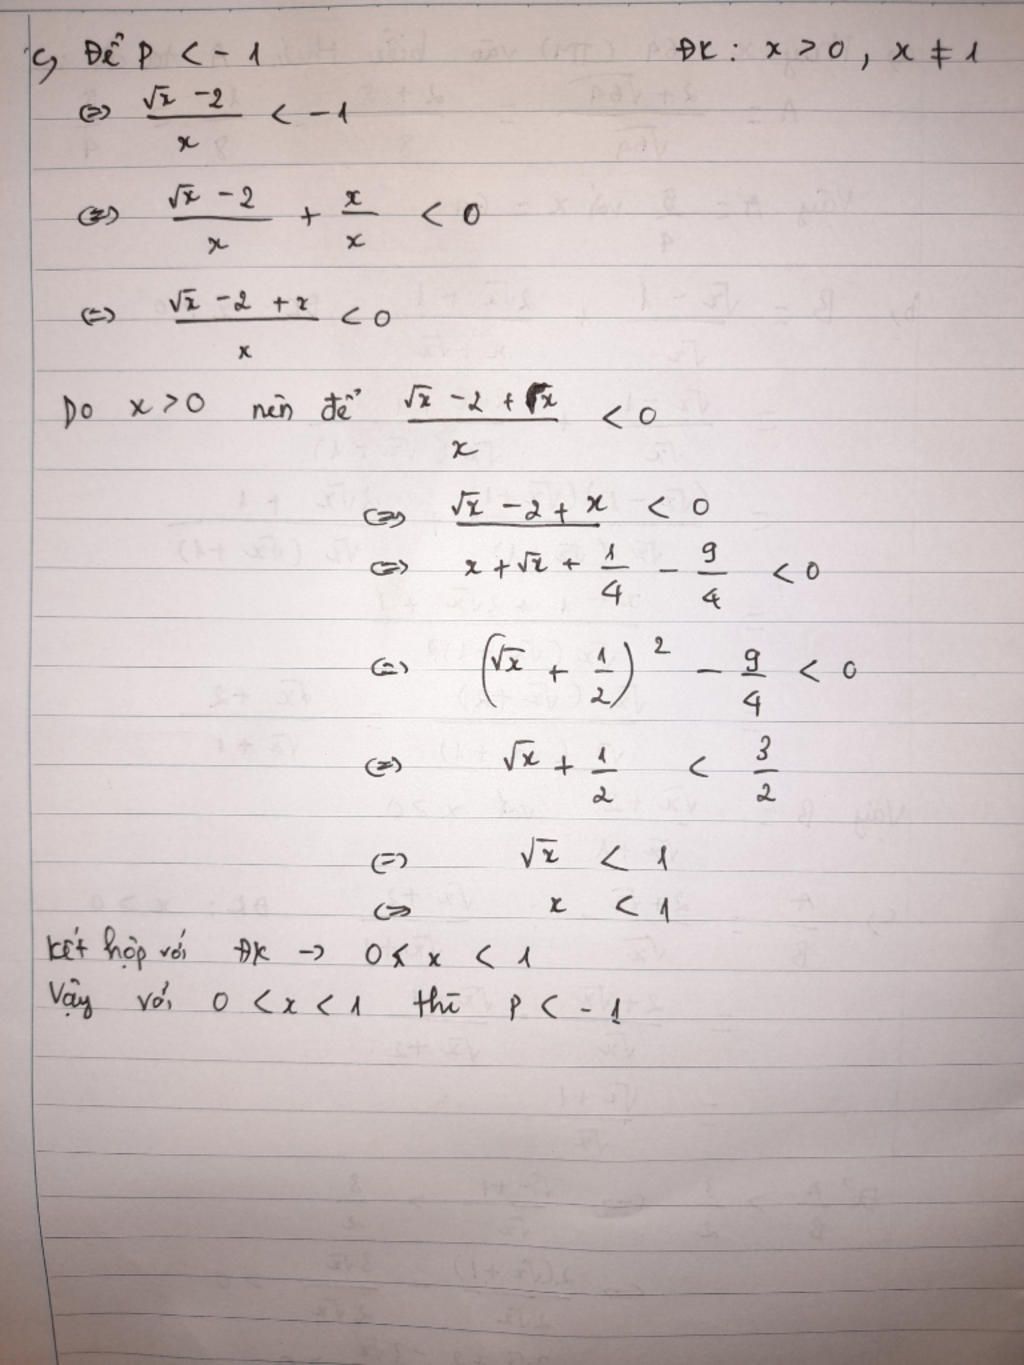 c, Để P < -1 ĐK: x > 0, x ≠ 1
⇔ (√x - 2)/x < -1
⇔ (√x - 2)/x + x/x < 0
⇔ (√x - 2 + x)/x < 0
Do x > 0 nên để (√x - 2 + x)/x < 0
⇔ √x - 2 + x < 0
⇔ x + √x + 1/4 - 9/4 < 0
⇔ (√x + 1/2)² - 9/4 < 0
⇔ √x + 1/2 < 3/2
⇔ √x < 1
⇔ x < 1
Kết hợp với ĐK → 0 < x < 1
Vậy với 0 < x < 1 thì P < -1